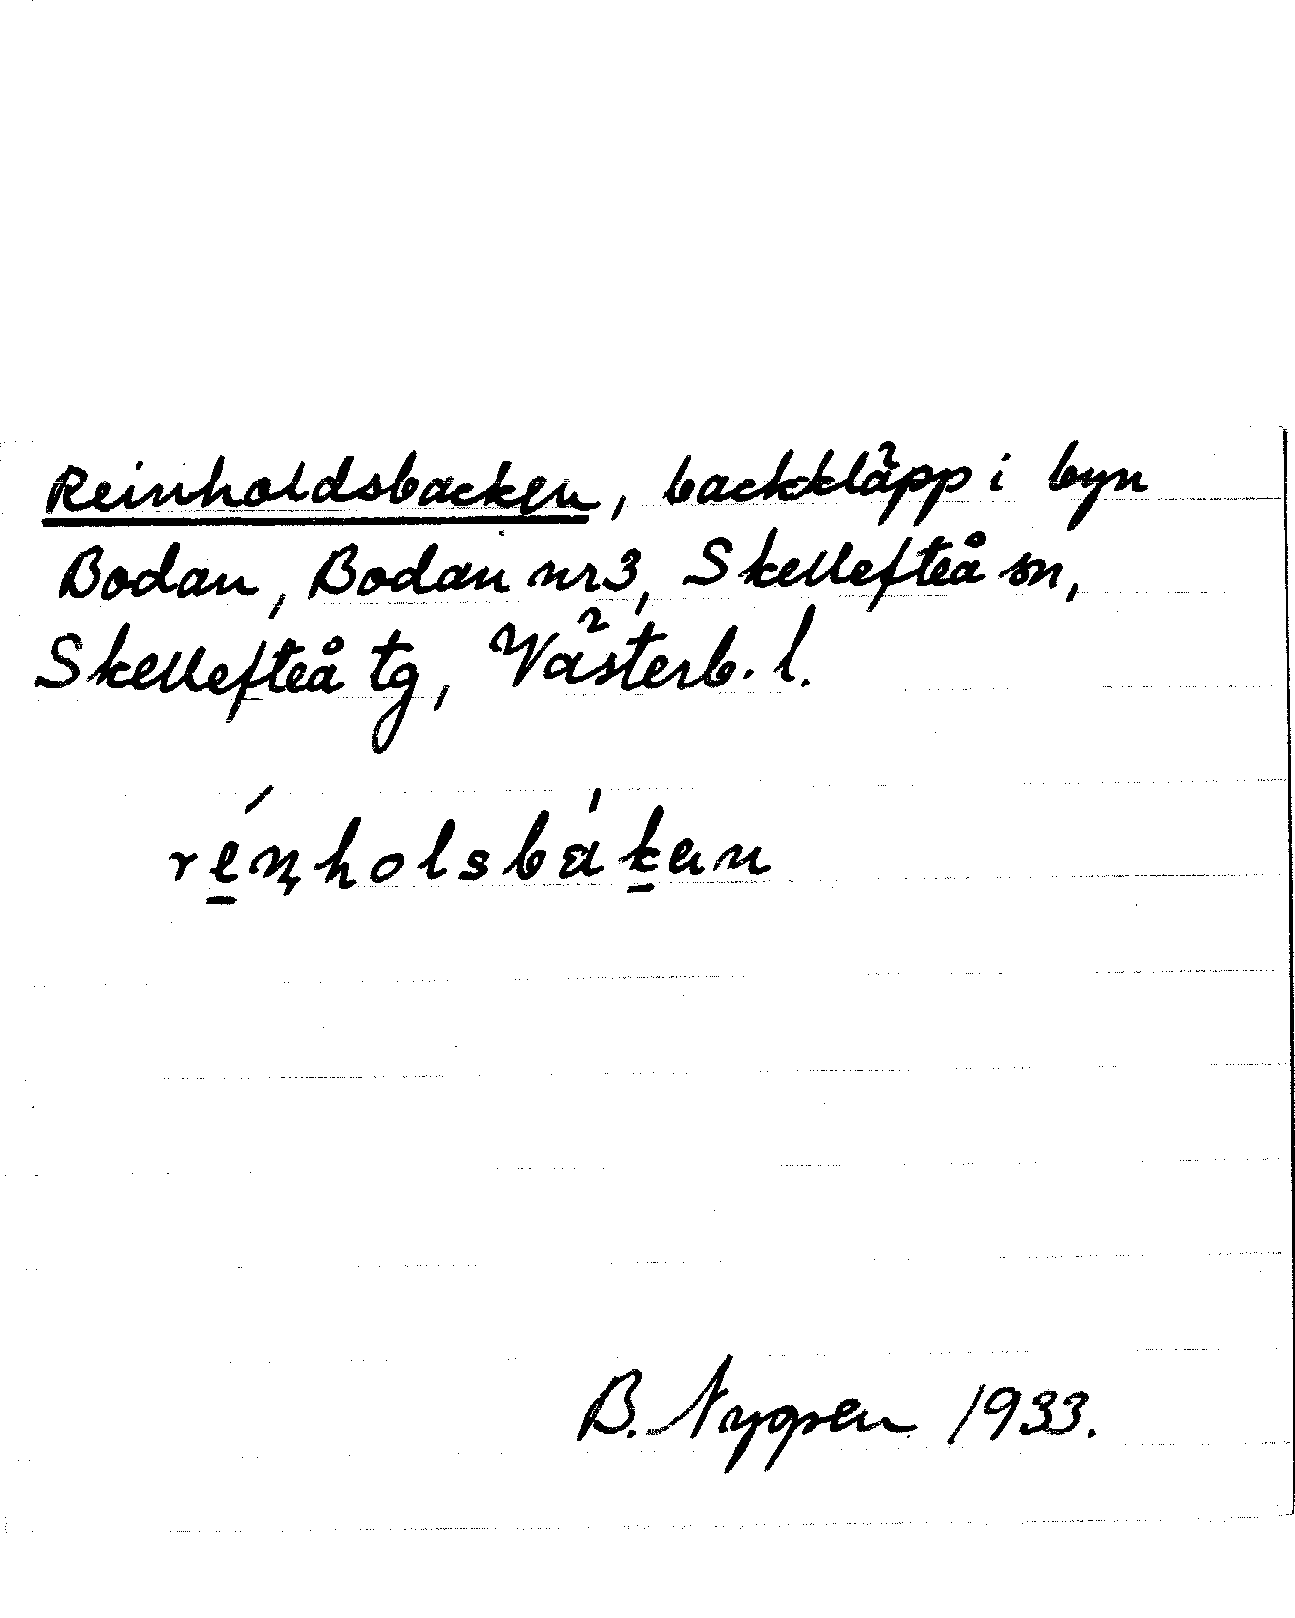 Reinholdsbacken, backkläpp i byn
Bodan, Bodan nr 3, Skellefteå sn,
Skellefteå tg, Västerb. l.
B. Nygren 1933.